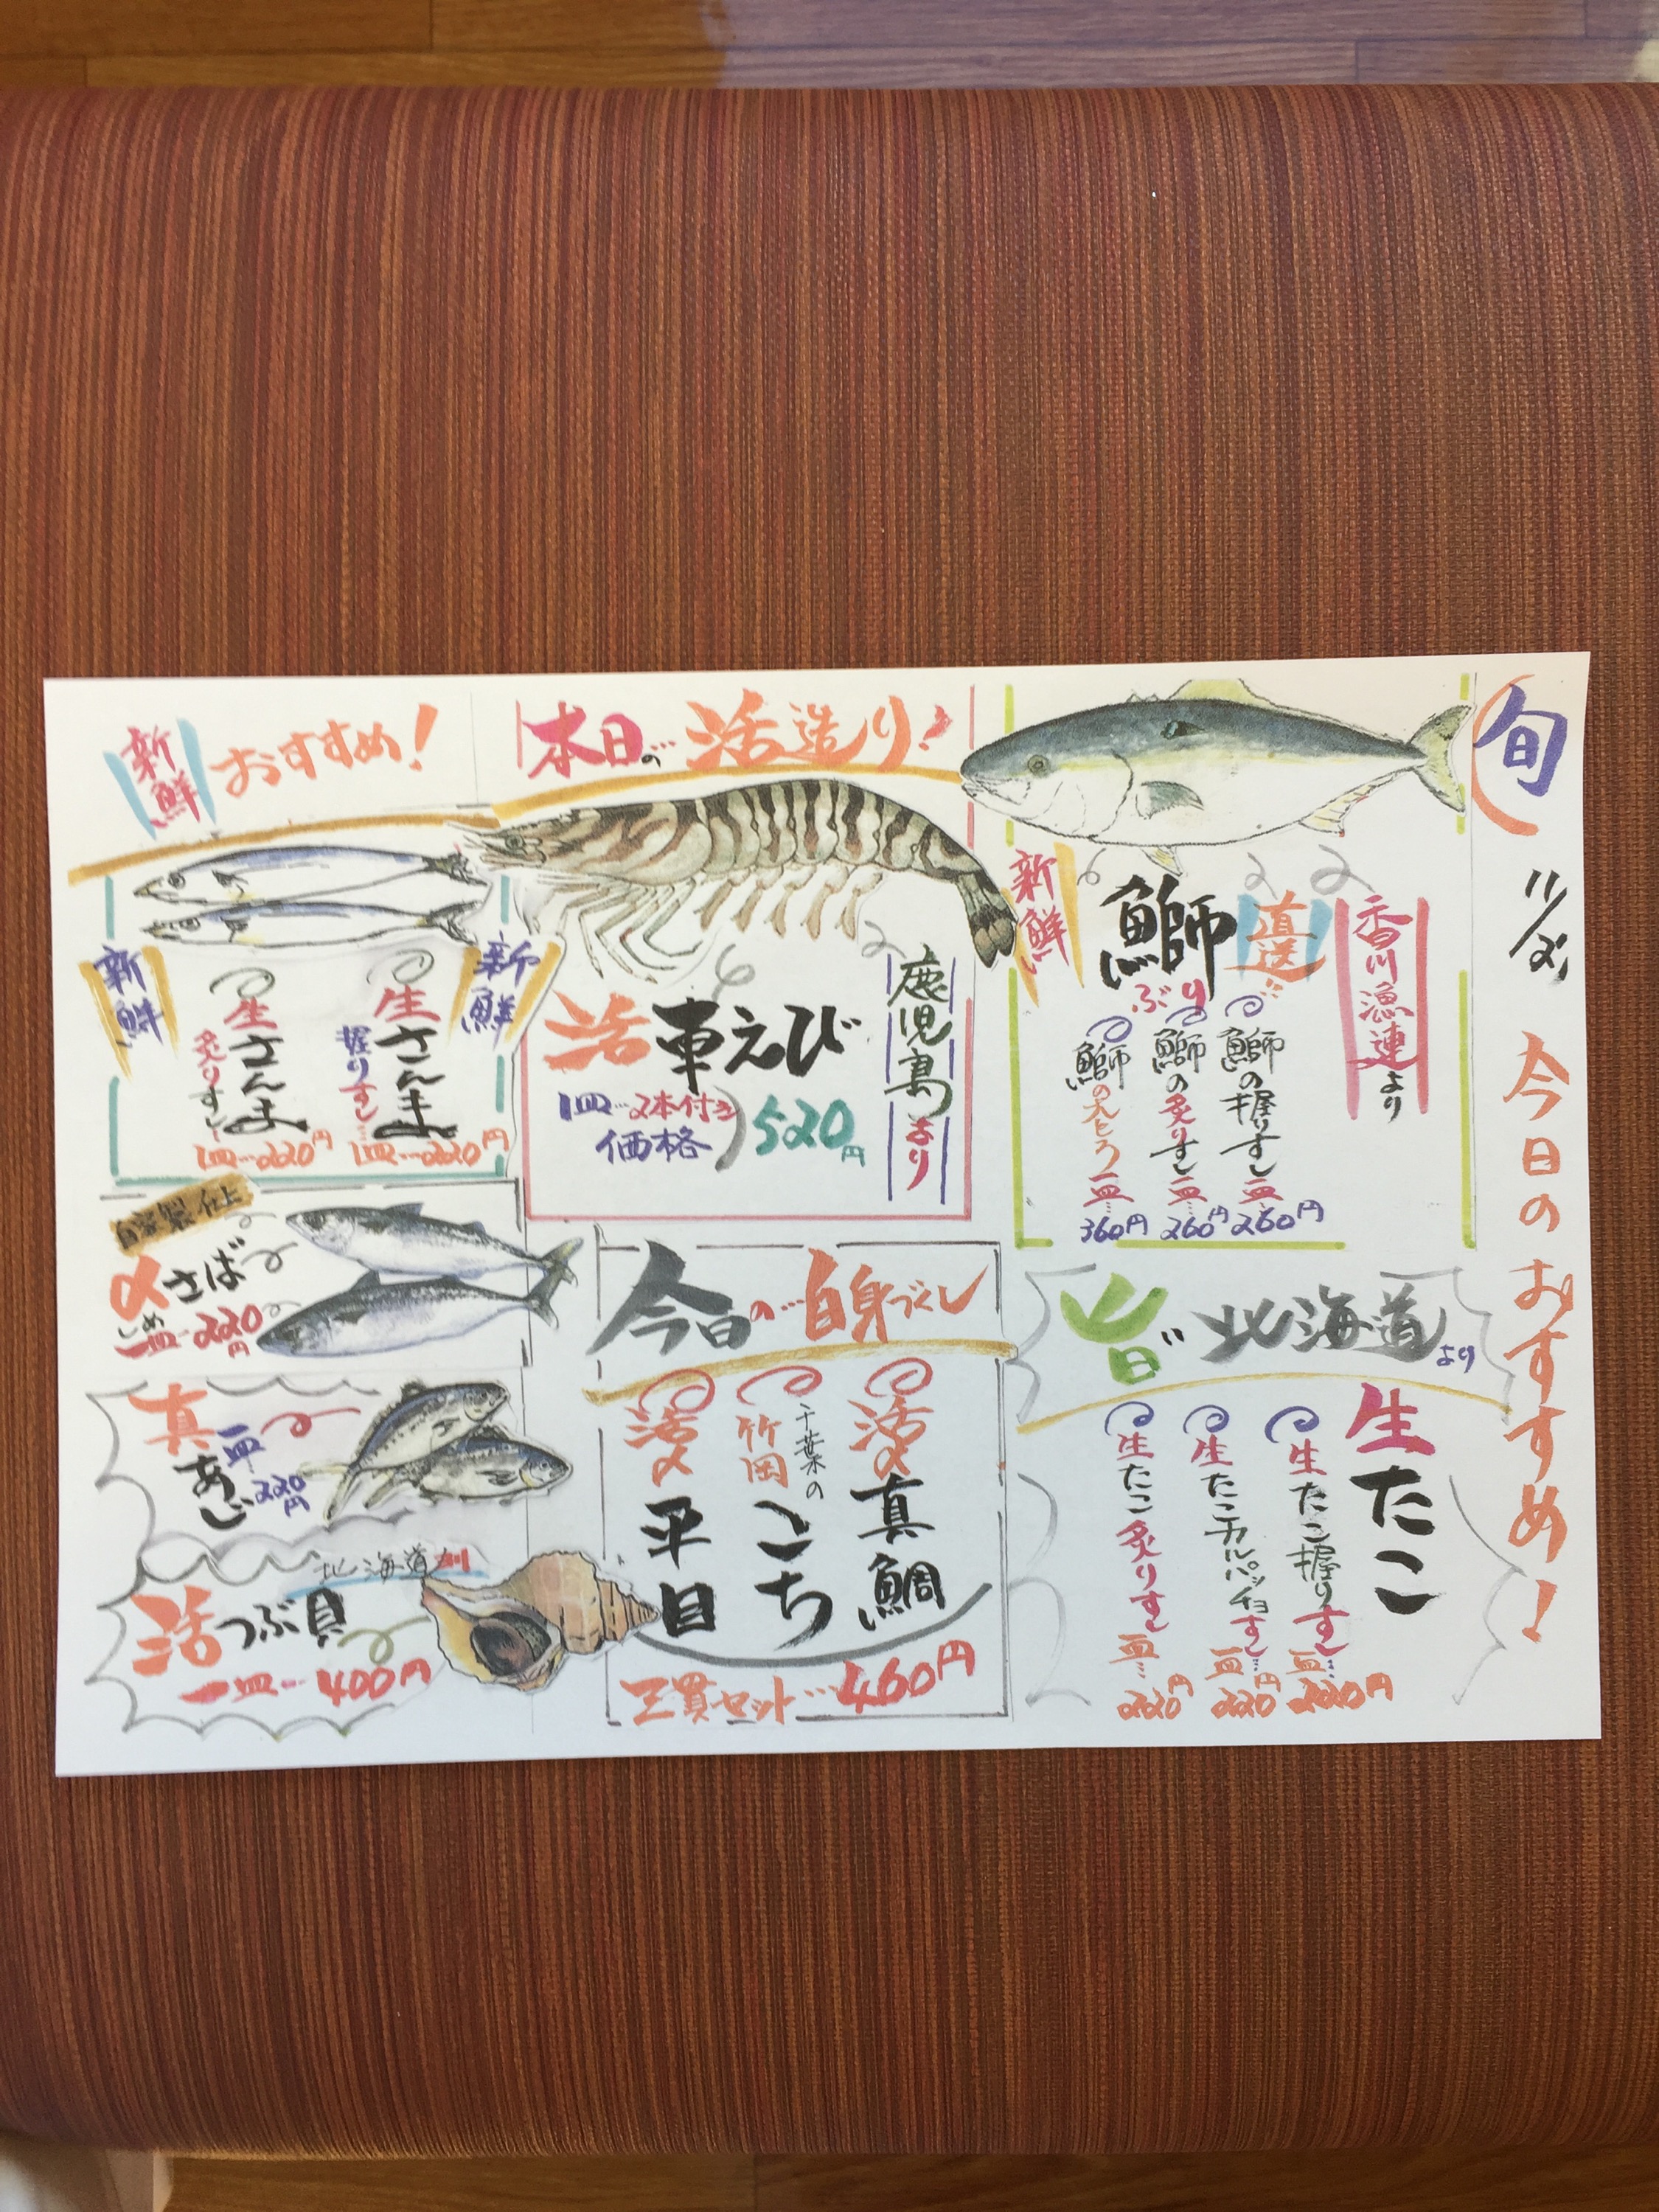 旬
今日のおすすめ!
香川漁連より
直送!!
鰤
ぶり
新鮮
鰤の握りすし
一皿…260円
鰤の炙りすし
一皿…260円
鰤の大とろ
一皿…360円
北海道より
生たこ
生たこ握りすし
一皿…220円
生たこカルパッチョすし
一皿…220円
生たこ炙りすし
一皿…220円
本日の…活造り!
鹿児島より
活車えび
1皿…2本付き
価格 520円
今日の…白身づくし
活〆真鯛
千葉の竹岡こち
活〆平目
三貫セット…460円
新鮮 おすすめ!
新鮮
生さんま
握りすし
1皿…220円
生さんま
炙りすし
1皿…220円
新鮮
自家製仕上
〆さば
しめ
一皿…220円
真あじ
一皿
220円
北海道
活つぶ貝
一皿…400円